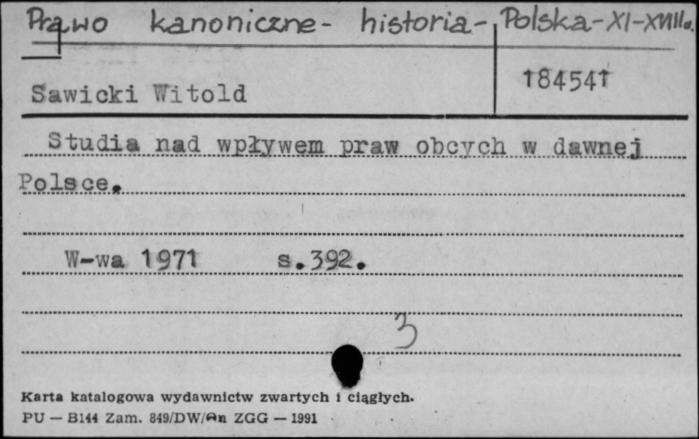 Prawo kanoniczne - historia - Polska - XI-XVIII w.
Sawicki Witold
184541
Studia nad wpływem praw obcych w dawnej
Polsce.
W-wa 1971 s.392.
3
Karta katalogowa wydawnictw zwartych i ciągłych.
PU — B144 Zam. 849/DW/An ZGG — 1991